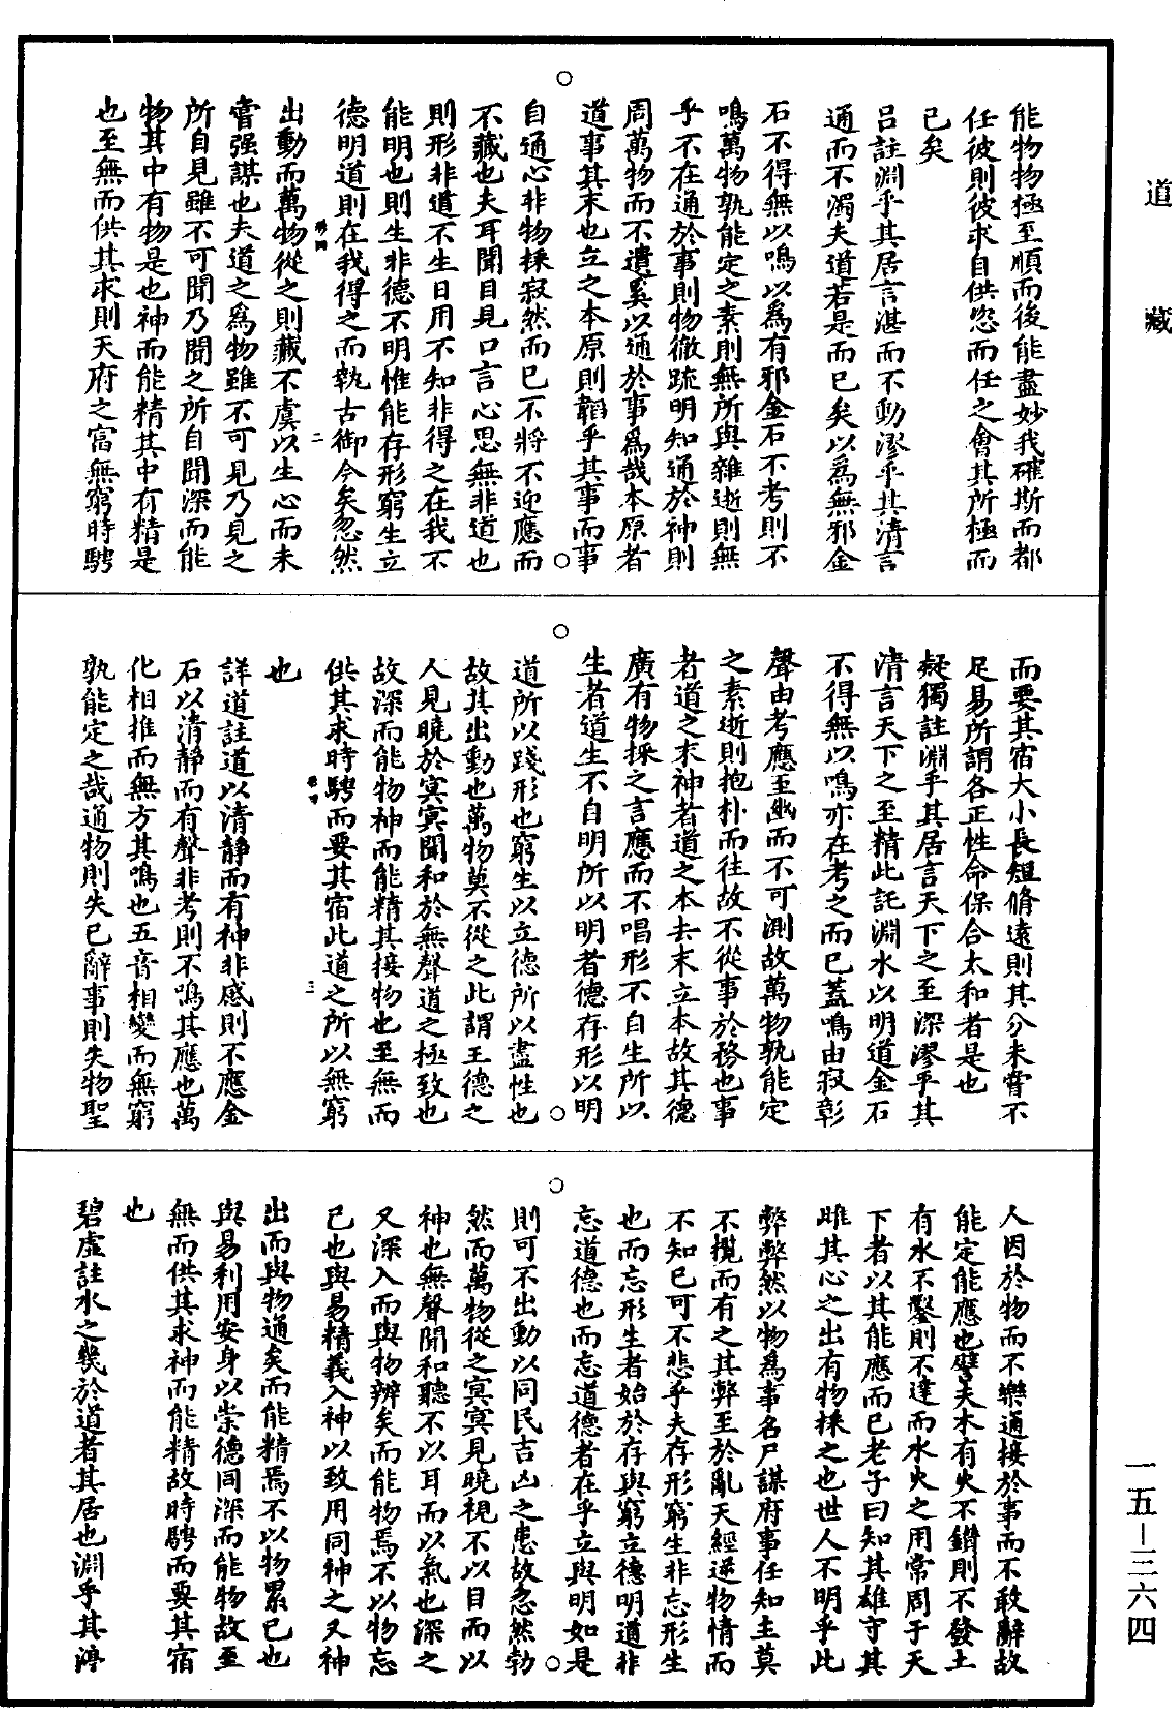 道藏
能物物極至順而後能盡妙我確斯而都
任彼則彼求自供恣而任之會其所極而
已矣
呂註淵乎其居言湛而不動漻乎其清言
通而不濁夫道若是而已矣以爲無邪金
石不得無以鳴以爲有邪金石不考則不
鳴萬物孰能定之素則無所與雜逝則無
乎不在通於事則物徹疏明知通於神則
周萬物而不遺奚以通於事爲哉本原者
道事其末也立之本原則韜乎其事而事
自通心非物採寂然而已不將不迎應而
不藏也夫耳聞目見口言心思無非道也
則形非道不生日用不知非得之在我不
能明也則生非德不明惟能存形窮生立
德明道則在我得之而執古御今矣忽然
出動而萬物從之則藏不虞以生心而未
嘗强謀也夫道之爲物雖不可見乃見之
所自見雖不可聞乃聞之所自聞深而能
物其中有物是也神而能精其中有精是
也至無而供其求則天府之富無窮時騁
而要其宿大小長短脩遠則其分未嘗不
足易所謂各正性命保合太和者是也
疑獨註淵乎其居言天下之至深漻乎其
清言天下之至精此託淵水以明道金石
不得無以鳴亦在考之而已蓋鳴由寂彰
聲由考應至幽而不可測故萬物孰能定
之素逝則抱朴而往故不從事於務也事
者道之末神者道之本去末立本故其德
廣有物採之言應而不唱形不自生所以
生者道生不自明所以明者德存形以明
道所以踐形也窮生以立德所以盡性也
故其出動也萬物莫不從之此謂王德之
人見曉於冥冥聞和於無聲道之極致也
故深而能物神而能精其接物也至無而
供其求時騁而要其宿此道之所以無窮
也
詳道註道以清靜而有神非感則不應金
石以清靜而有聲非考則不鳴其應也萬
化相推而無方其鳴也五音相變而無窮
孰能定之哉通物則失己辭事則失物聖
人因於物而不樂通接於事而不敢辭故
能定能應也譬夫木有火不鑽則不發土
有水不鑿則不達而水火之用常周于天
下者以其能應而已老子曰知其雄守其
雌其心之出有物採之也世人不明乎此
弊弊然以物爲事名尸謀府事任知主莫
不攬而有之其弊至於亂天經逆物情而
不知已可不悲乎夫存形窮生非忘形生
也而忘形生者始於存與窮立德明道非
忘道德也而忘道德者在乎立與明如是
則可不出動以同民吉凶之患故忽然勃
然而萬物從之冥冥見曉視不以目而以
神也無聲聞和聽不以耳而以氣也深之
又深入而與物辨矣而能物焉不以物忘
己也與易精義入神以致用同神之又神
出而與物通矣而能精焉不以物累己也
與易利用安身以崇德同深而能物故至
無而供其求神而能精故時騁而要其宿
也
碧虛註水之幾於道者其居也淵乎其渟
一五－三六四